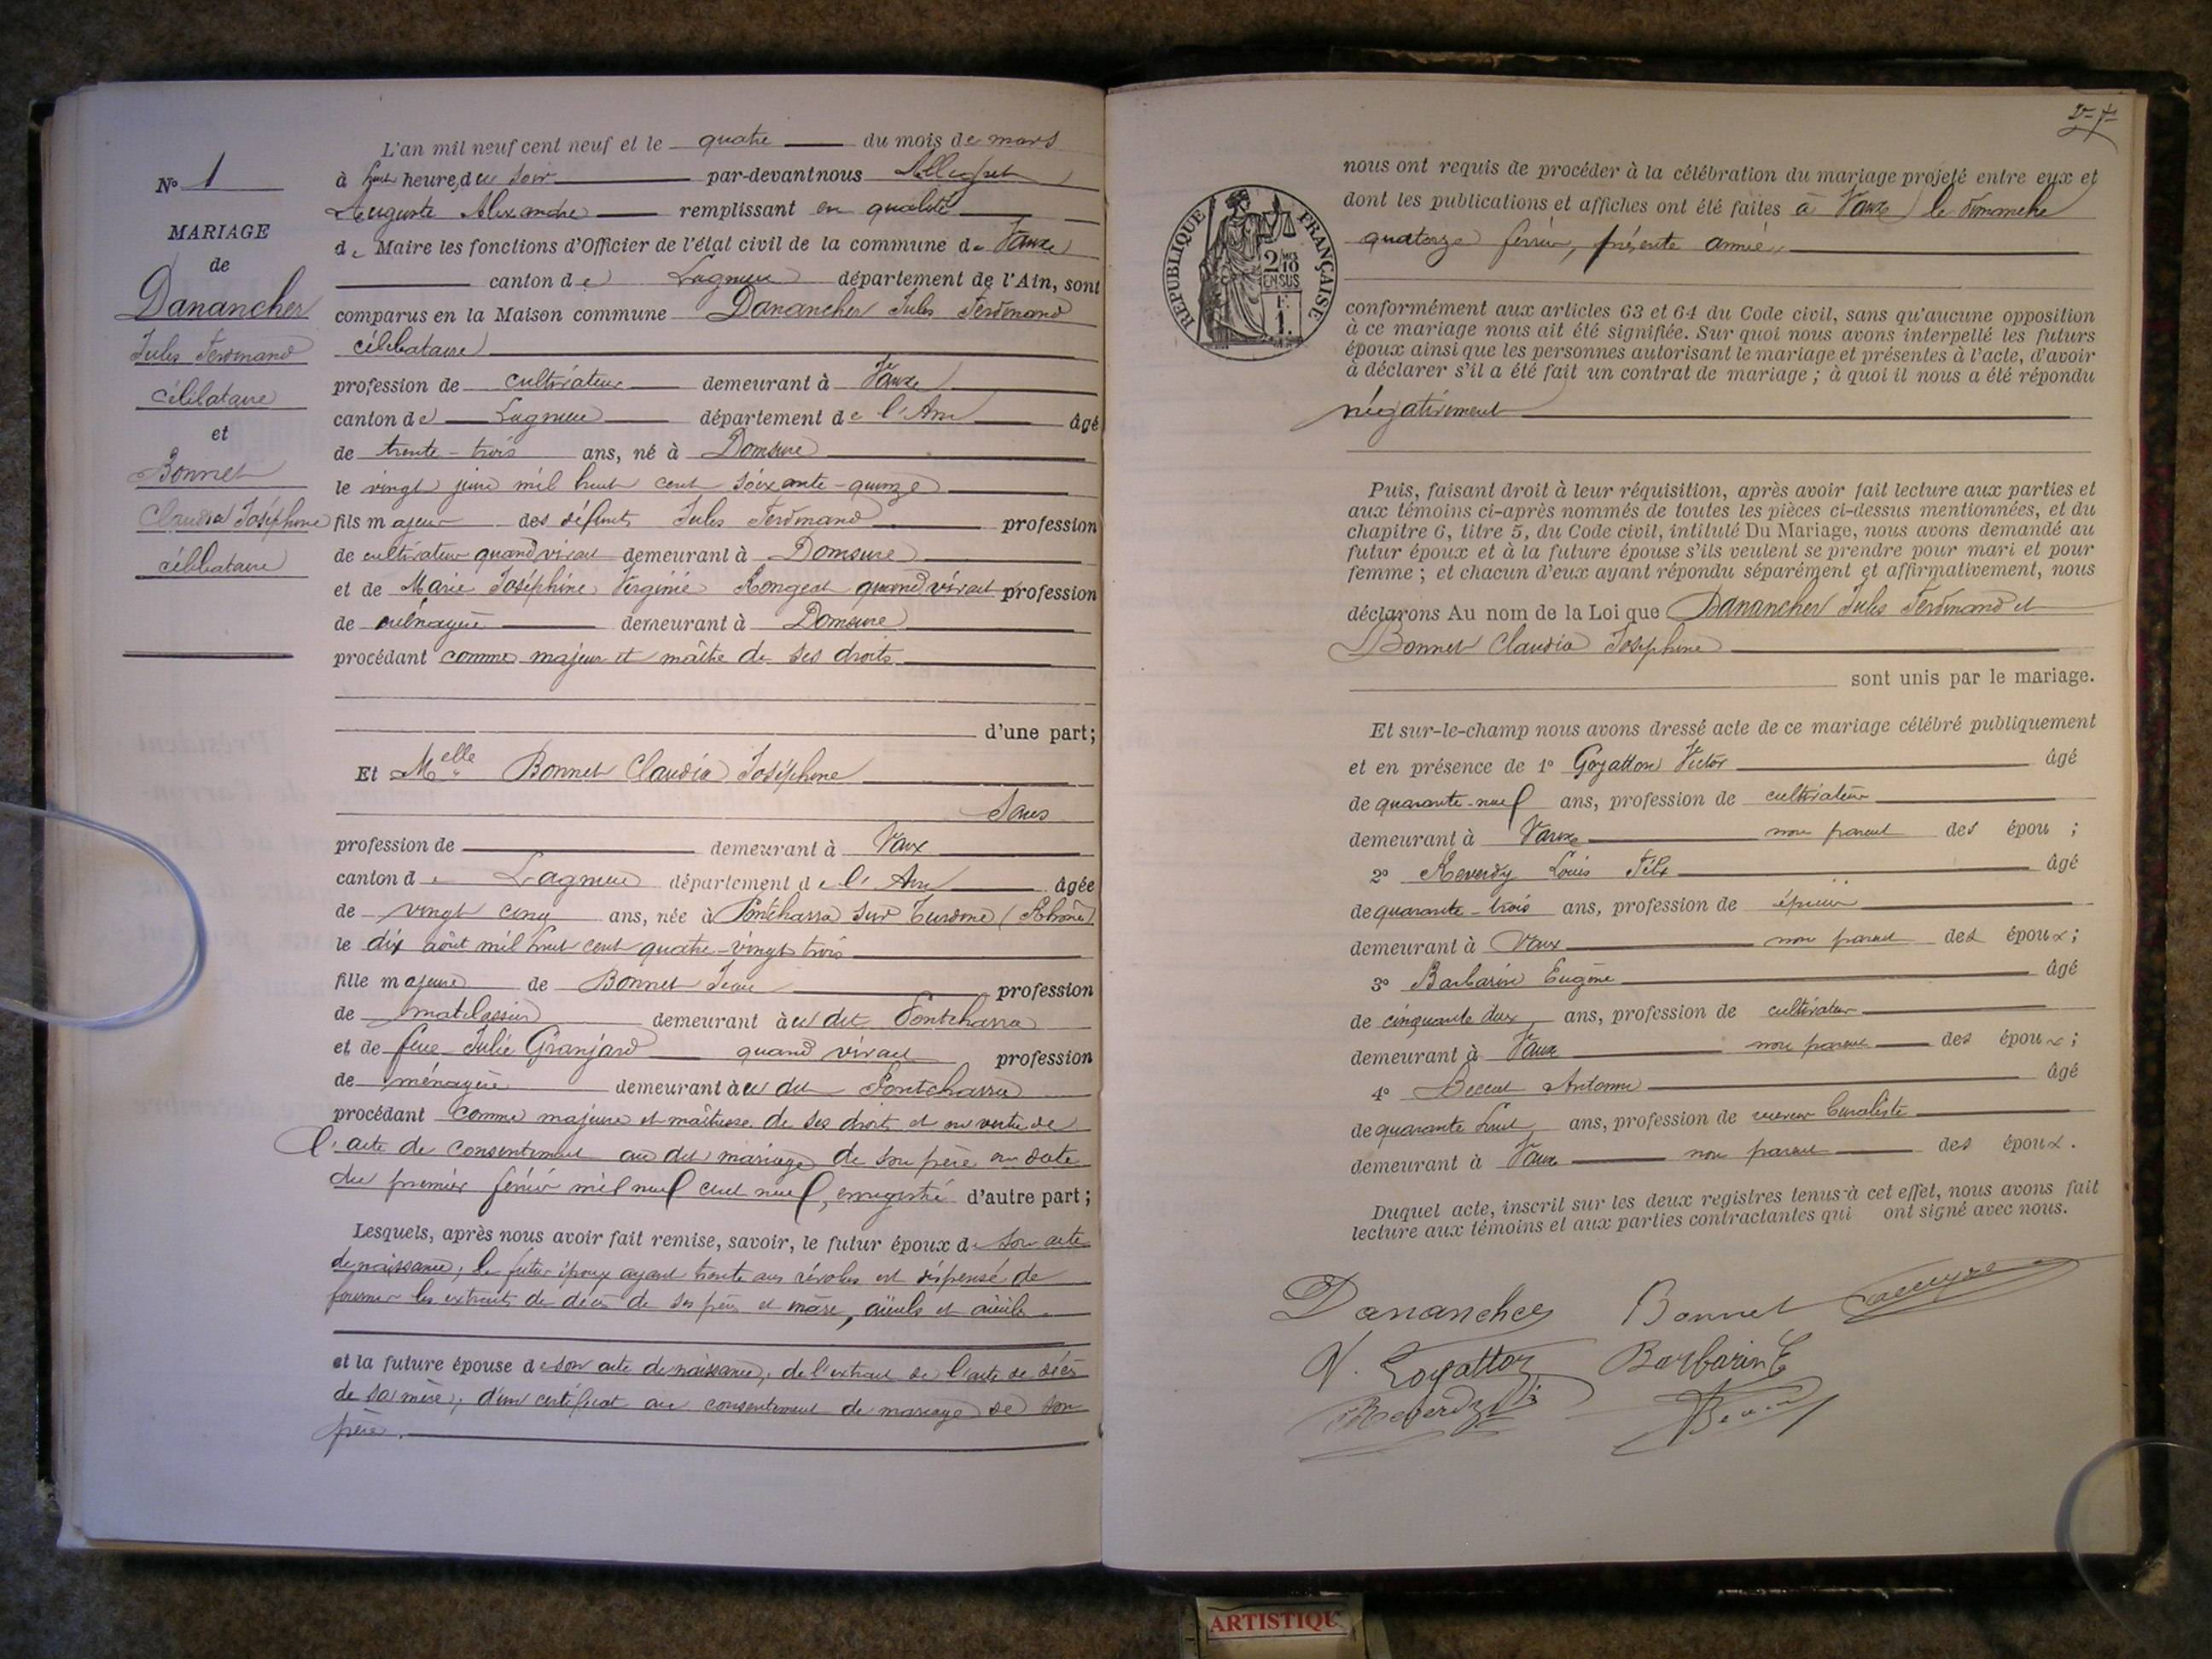 N° 1
MARIAGE
de
Danancher
Jules Ferdinand
célibataire
et
Bonnet
Claudia Joséphine
célibataire
L'an mil neuf cent neuf et le quatre du mois de mars
à huit heures du soir par-devant nous
Auguste Alexandre remplissant en qualité
de Maire les fonctions d'Officier de l'état civil de la commune de Vaux
canton de Lagnieu département de l'Ain, sont
comparus en la Maison commune Danancher Jules Ferdinand
célibataire
profession de cultivateur demeurant à Vaux
canton de Lagnieu département de l'Ain âgé
de trente-trois ans, né à Domsure
le vingt juin mil huit cent soixante-quinze
fils majeur des défunts Jules Ferdinand profession
de cultivateur quand vivait demeurant à Domsure
et de Marie Joséphine Virginie Rongeat quand vivait profession
de ménagère demeurant à Domsure
procédant comme majeur et maître de ses droits
d'une part;
Et Melle Bonnet Claudia Joséphine
Sans
profession de demeurant à Vaux
canton de Lagnieu département de l'Ain âgée
de vingt cinq ans, née à Pontcharra sur Turdine (Rhône)
le dix août mil huit cent quatre-vingt trois
fille majeure de Bonnet Jean profession
de matelassier demeurant au dit Pontcharra
et de feue Julie Granjard quand vivait profession
de ménagère demeurant au dit Pontcharra
procédant comme majeure et maîtresse de ses droits et en vertu de
l'acte de consentement au dit mariage de son père en date
du premier février mil neuf cent neuf, enregistré d'autre part;
Lesquels, après nous avoir fait remise, savoir, le futur époux de son acte
de naissance; le futur époux ayant trente ans révolus est dispensé de
fournir les extraits de décès de ses père et mère, aïeuls et aïeules.
et la future épouse de son acte de naissance, de l'extrait de l'acte de décès
de sa mère, d'un certificat au consentement de mariage de son
père.
27
REPUBLIQUE FRANÇAISE
nous ont requis de procéder à la célébration du mariage projeté entre eux et
dont les publications et affiches ont été faites à Vaux le dimanche
quatorze février, présente année,
conformément aux articles 63 et 64 du Code civil, sans qu'aucune opposition
à ce mariage nous ait été signifiée. Sur quoi nous avons interpellé les futurs
époux ainsi que les personnes autorisant le mariage et présentes à l'acte, d'avoir
à déclarer s'il a été fait un contrat de mariage; à quoi il nous a été répondu
négativement
Puis, faisant droit à leur réquisition, après avoir fait lecture aux parties et
aux témoins ci-après nommés de toutes les pièces ci-dessus mentionnées, et du
chapitre 6, titre 5, du Code civil, intitulé Du Mariage, nous avons demandé au
futur époux et à la future épouse s'ils veulent se prendre pour mari et pour
femme; et chacun d'eux ayant répondu séparément et affirmativement, nous
déclarons Au nom de la Loi que Danancher Jules Ferdinand et
Bonnet Claudia Joséphine
sont unis par le mariage.
Et sur-le-champ nous avons dressé acte de ce mariage célébré publiquement
et en présence de 1° Goyatton Victor âgé
de quarante-neuf ans, profession de cultivateur
demeurant à Vaux non parent des épou ;
2° Reverdy Louis Félix âgé
de quarante-trois ans, profession de épicier
demeurant à Vaux non parent des époux;
3° Barbarin Eugène âgé
de cinquante deux ans, profession de cultivateur
demeurant à Vaux non parent des époux;
4° Antoine âgé
de quarante huit ans, profession de receveur buraliste
demeurant à Vaux non parent des époux.
Duquel acte, inscrit sur les deux registres tenus à cet effet, nous avons fait
lecture aux témoins et aux parties contractantes qui ont signé avec nous.
Danancher Bonnet
V. Goyatton Barbarin E
Reverdy
ARTISTIQU